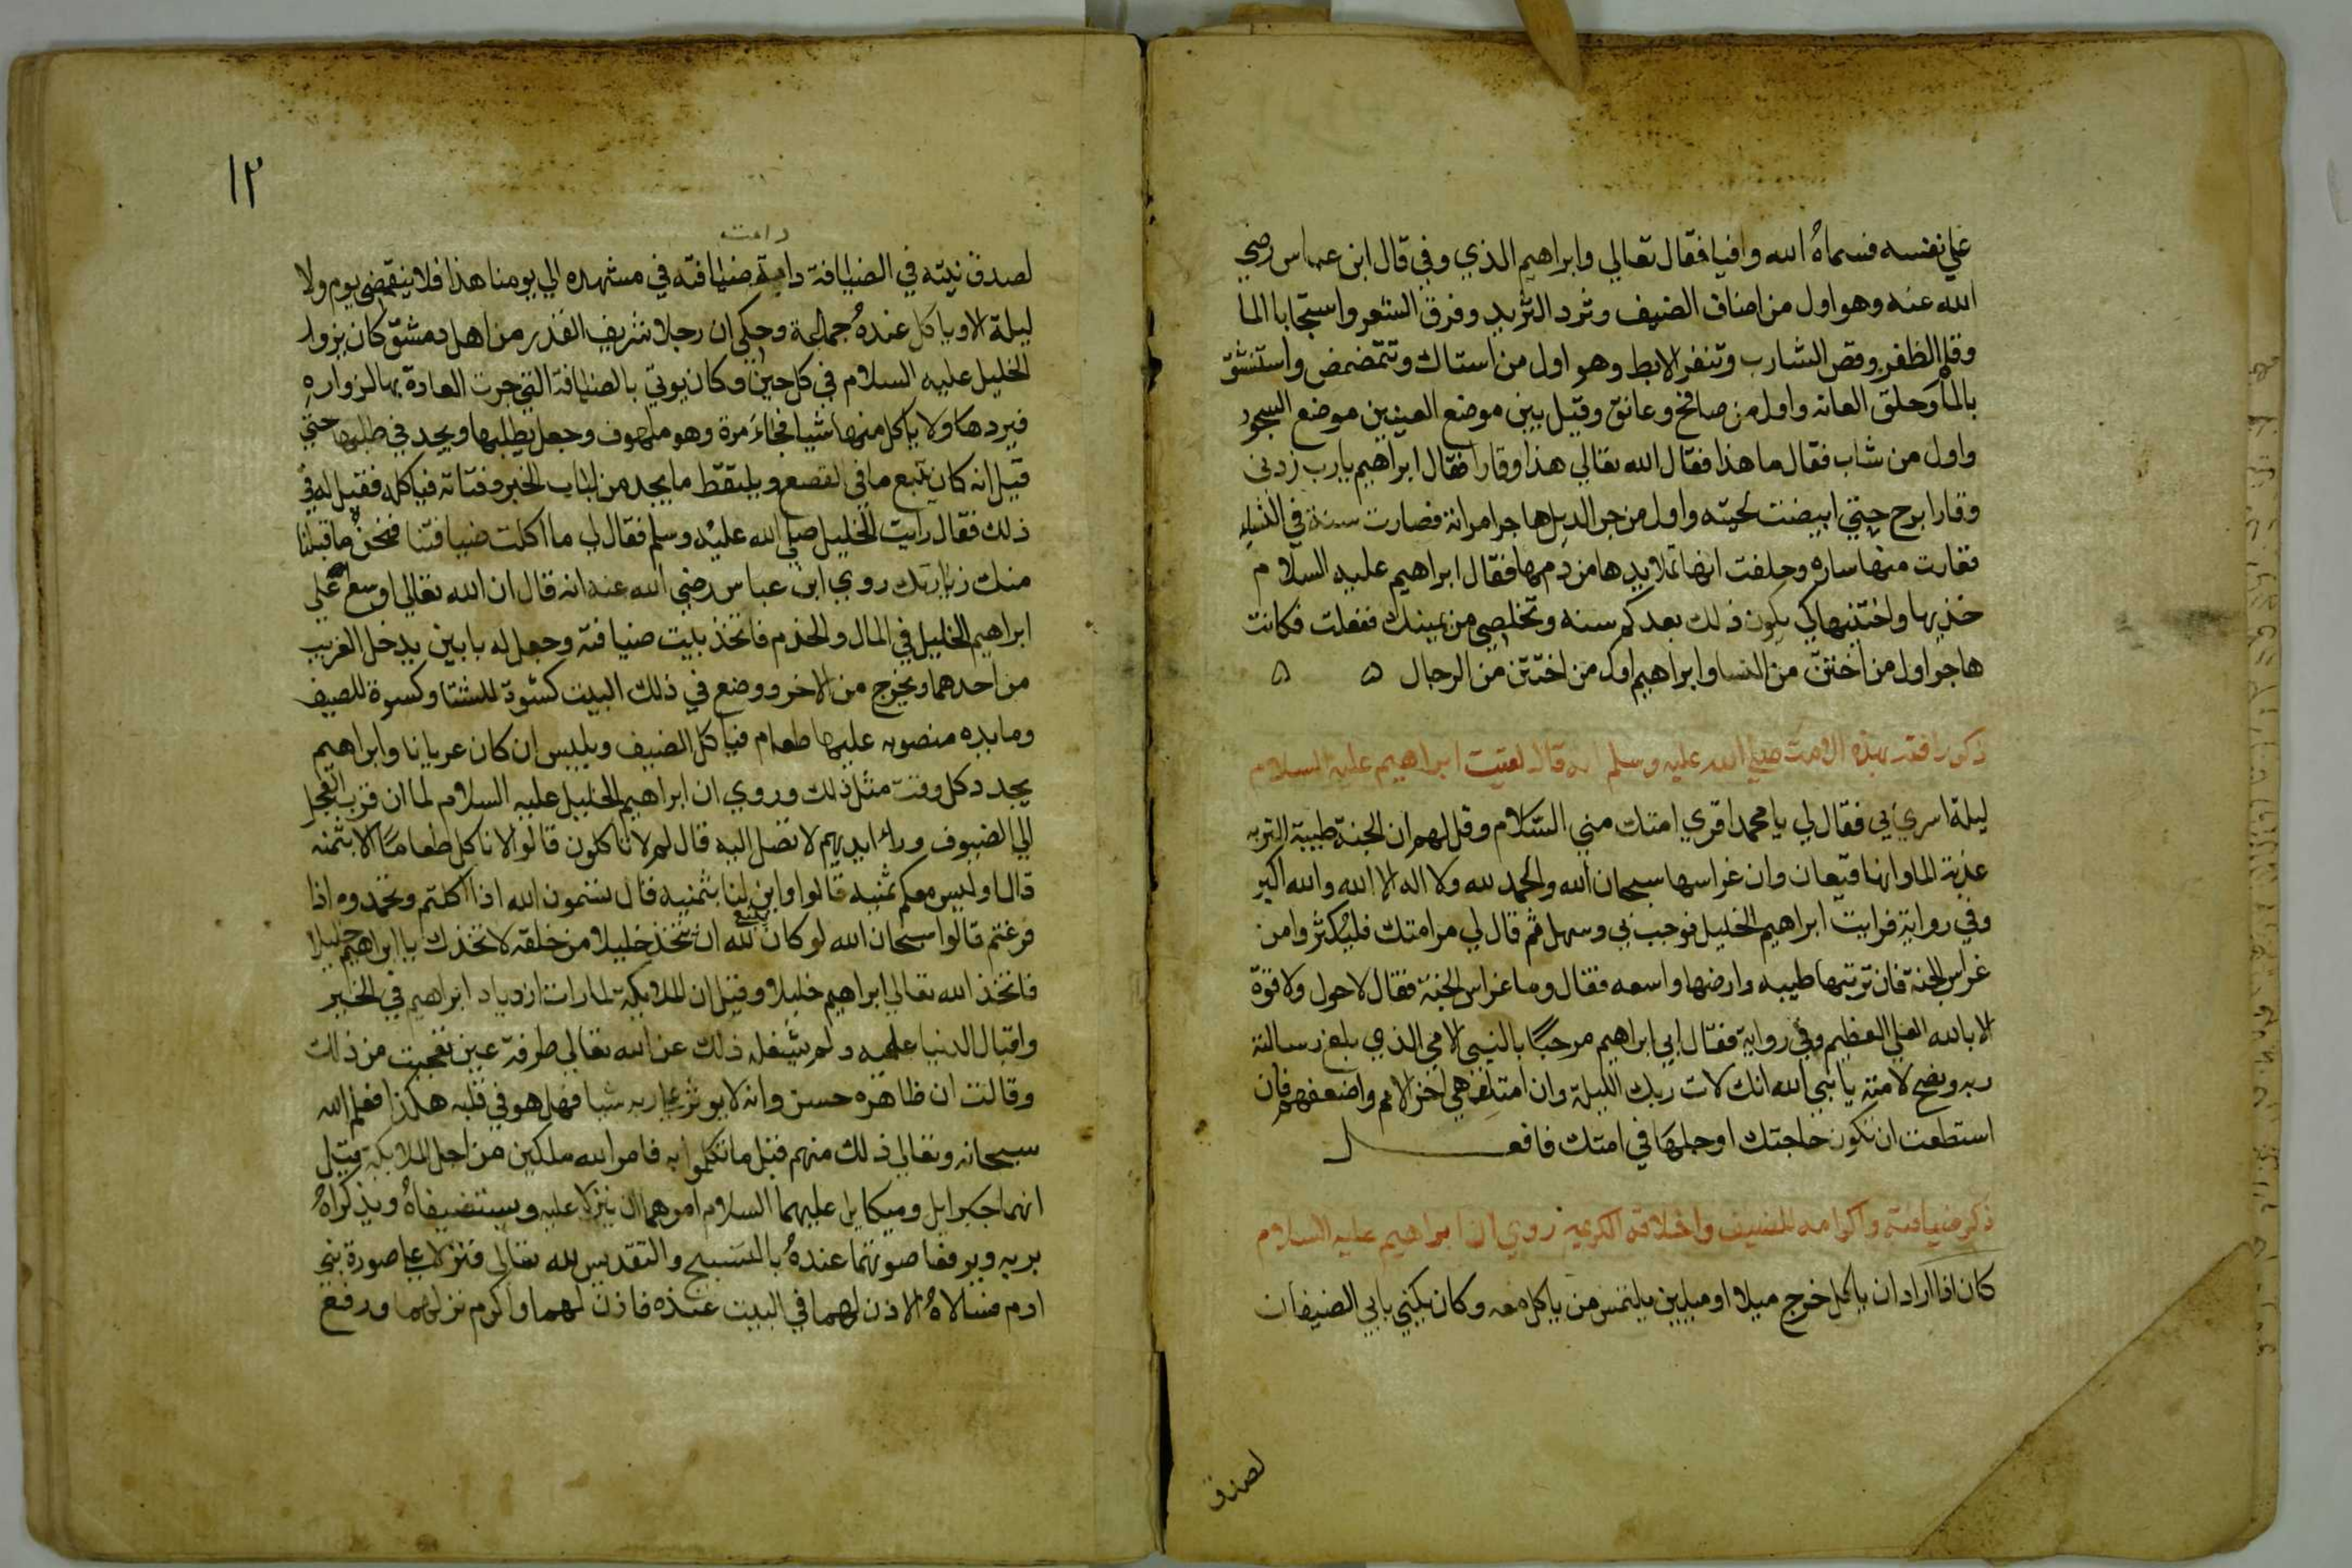 علي نفسه فسماه الله وافيا فقال تعالي وابراهيم الذي وفي قال ابن عباس رضي
الله عنه وهو اول من اضاف الضيف وثرد الثريد وفرق الشعر واستنجا بالما
وقلم الظفر وقص الشارب ونتف الابط وهو اول من استاك وتمضمض واستنشق
بالماء وحلق العانه واول من صافح وعانق وقبل بين موضع العينين موضع السجود
واول من شاب فقال ما هذا فقال الله تعالي هذا وقارا فقال ابراهيم يارب زدني
وقارا برح حتي ابيضت لحيته واول من جر الديل هاجر امراته فصارت سنة في النسا
فغارت منها ساره وحلفت انها تملا يدها من دمها فقال ابراهيم عليه السلام
خذيها واختنيها كي يكون ذلك بعدكم سنه وتخلصي من يمينك ففعلت فكانت
هاجر اول من اختتن من النسا وابراهيم اول من اختتن من الرجال ه ه
ذكر رافته بهذه الامت صلي الله عليه وسلم انه قال لقيت ابراهيم عليه السلام
ليلة اسري بي فقال لي يا محمد اقري امتك مني السلام وقل لهم ان الجنة طيبة التربه
عذبة الما وانها قيعان وان غراسها سبحان الله والحمد لله ولا اله الا الله والله اكبر
وفي رواية فرايت ابراهيم الخليل فرحب بي وسهل ثم قال لي مر امتك فليكثروا من
غراس الجنة فان تربتها طيبه وارضها واسعه فقال وما غراس الجنة فقال لا حول ولا قوة
الا بالله العلي العظيم وفي رواية فقال لي ابراهيم مرحبا بالنبي الامي الذي بلغ رسالة
ربه ونصح لامته يا نبي الله انك لات ربك الليلة وان امتك هي اخر الامم واضعفهم فان
استطعت ان تكون حاجتك او جلها في امتك فافعل
ذكر ضيافته واكرامه للضيف واخلاقه الكريمه روي ان ابراهيم عليه السلام
كان اذا اراد ان ياكل خرج ميلا او ميلين يلتمس من ياكل معه وكان يكني بابي الضيفان
لصدق
١٢
دامت
لصدق نيته في الضيافة دامة ضيافته في مشهده الي يومنا هذا فلا ينقضي يوم ولا
ليلة الا وياكل عنده جماعة وحكي ان رجلا شريف القدر من اهل دمشق كان يزوار
الخليل عليه السلام في كل حين وكان يوتي بالضيافة التي جرت العادة بها لزواره
فيردها ولا ياكل منها شيا فجاء مرة وهو ملهوف وجعل يطلبها ويجد في طلبها حتي
قيل انه كان تتبع ما في القصع ويلتقط ما يجد من لباب الخبز وفتاته فياكله فقيل له في
ذلك فقال رايت الخليل صلي الله عليه وسلم فقال لي ما اكلت ضيافتنا فنحن ما قبلنا
منك زيارتك روي ابن عباس رضي الله عنه انه قال ان الله تعالي اوسع علي
ابراهيم الخليل في المال والخدم فاتخذ بيت ضيافة وجعل له بابين يدخل الغريب
من احدهما ويخرج من الاخر ووضع في ذلك البيت كسوة للشتا وكسوة للصيف
ومايده منصوبه عليها طعام فياكل الضيف ويلبس ان كان عريانا وابراهيم
يجدد كل وقت مثل ذلك وروي ان ابراهيم الخليل عليه السلام لما ان قرب العجل
الي الضيوف وراء ايديهم لا تصل اليه قال لم لا تاكلون قالوا لا ناكل طعاما الا بثمنه
قال او ليس معكم ثمنيه قالوا واين لنا بثمنيه قال تسمون الله اذا اكلتم وتحمدوه اذا
فرغتم قالوا سبحان الله لو كان ينبغي لله ان يتخذ خليلا من خلقه لاتخذك يا ابراهيم خليلا
فاتخذ الله تعالي ابراهيم خليلا وقيل ان الملايكة لما رات ازدياد ابراهيم في الخير
واقبال الدنيا عليه ولم يشغله ذلك عن الله تعالي طرفة عين تعجبت من ذلك
وقالت ان ظاهره حسن وانه لا يوثر علي ربه شيا فهل هو في قلبه هكذا فعلم الله
سبحانه وتعالي ذلك منهم قبل ما تكلموا به فامر الله ملكين من اجل الملايكة قيل
انهما جبرايل وميكايل عليهما السلام امرهما ان ينزلا عليه ويستضيفاه ويذكراه
بربه ويرفعا صوتهما عنده بالتسبيح والتقديس لله تعالي فنزلا علي صورة بني
ادم فسالاه الاذن لهما في البيت عنده فاذن لهما واكرم نزلهما ورفع